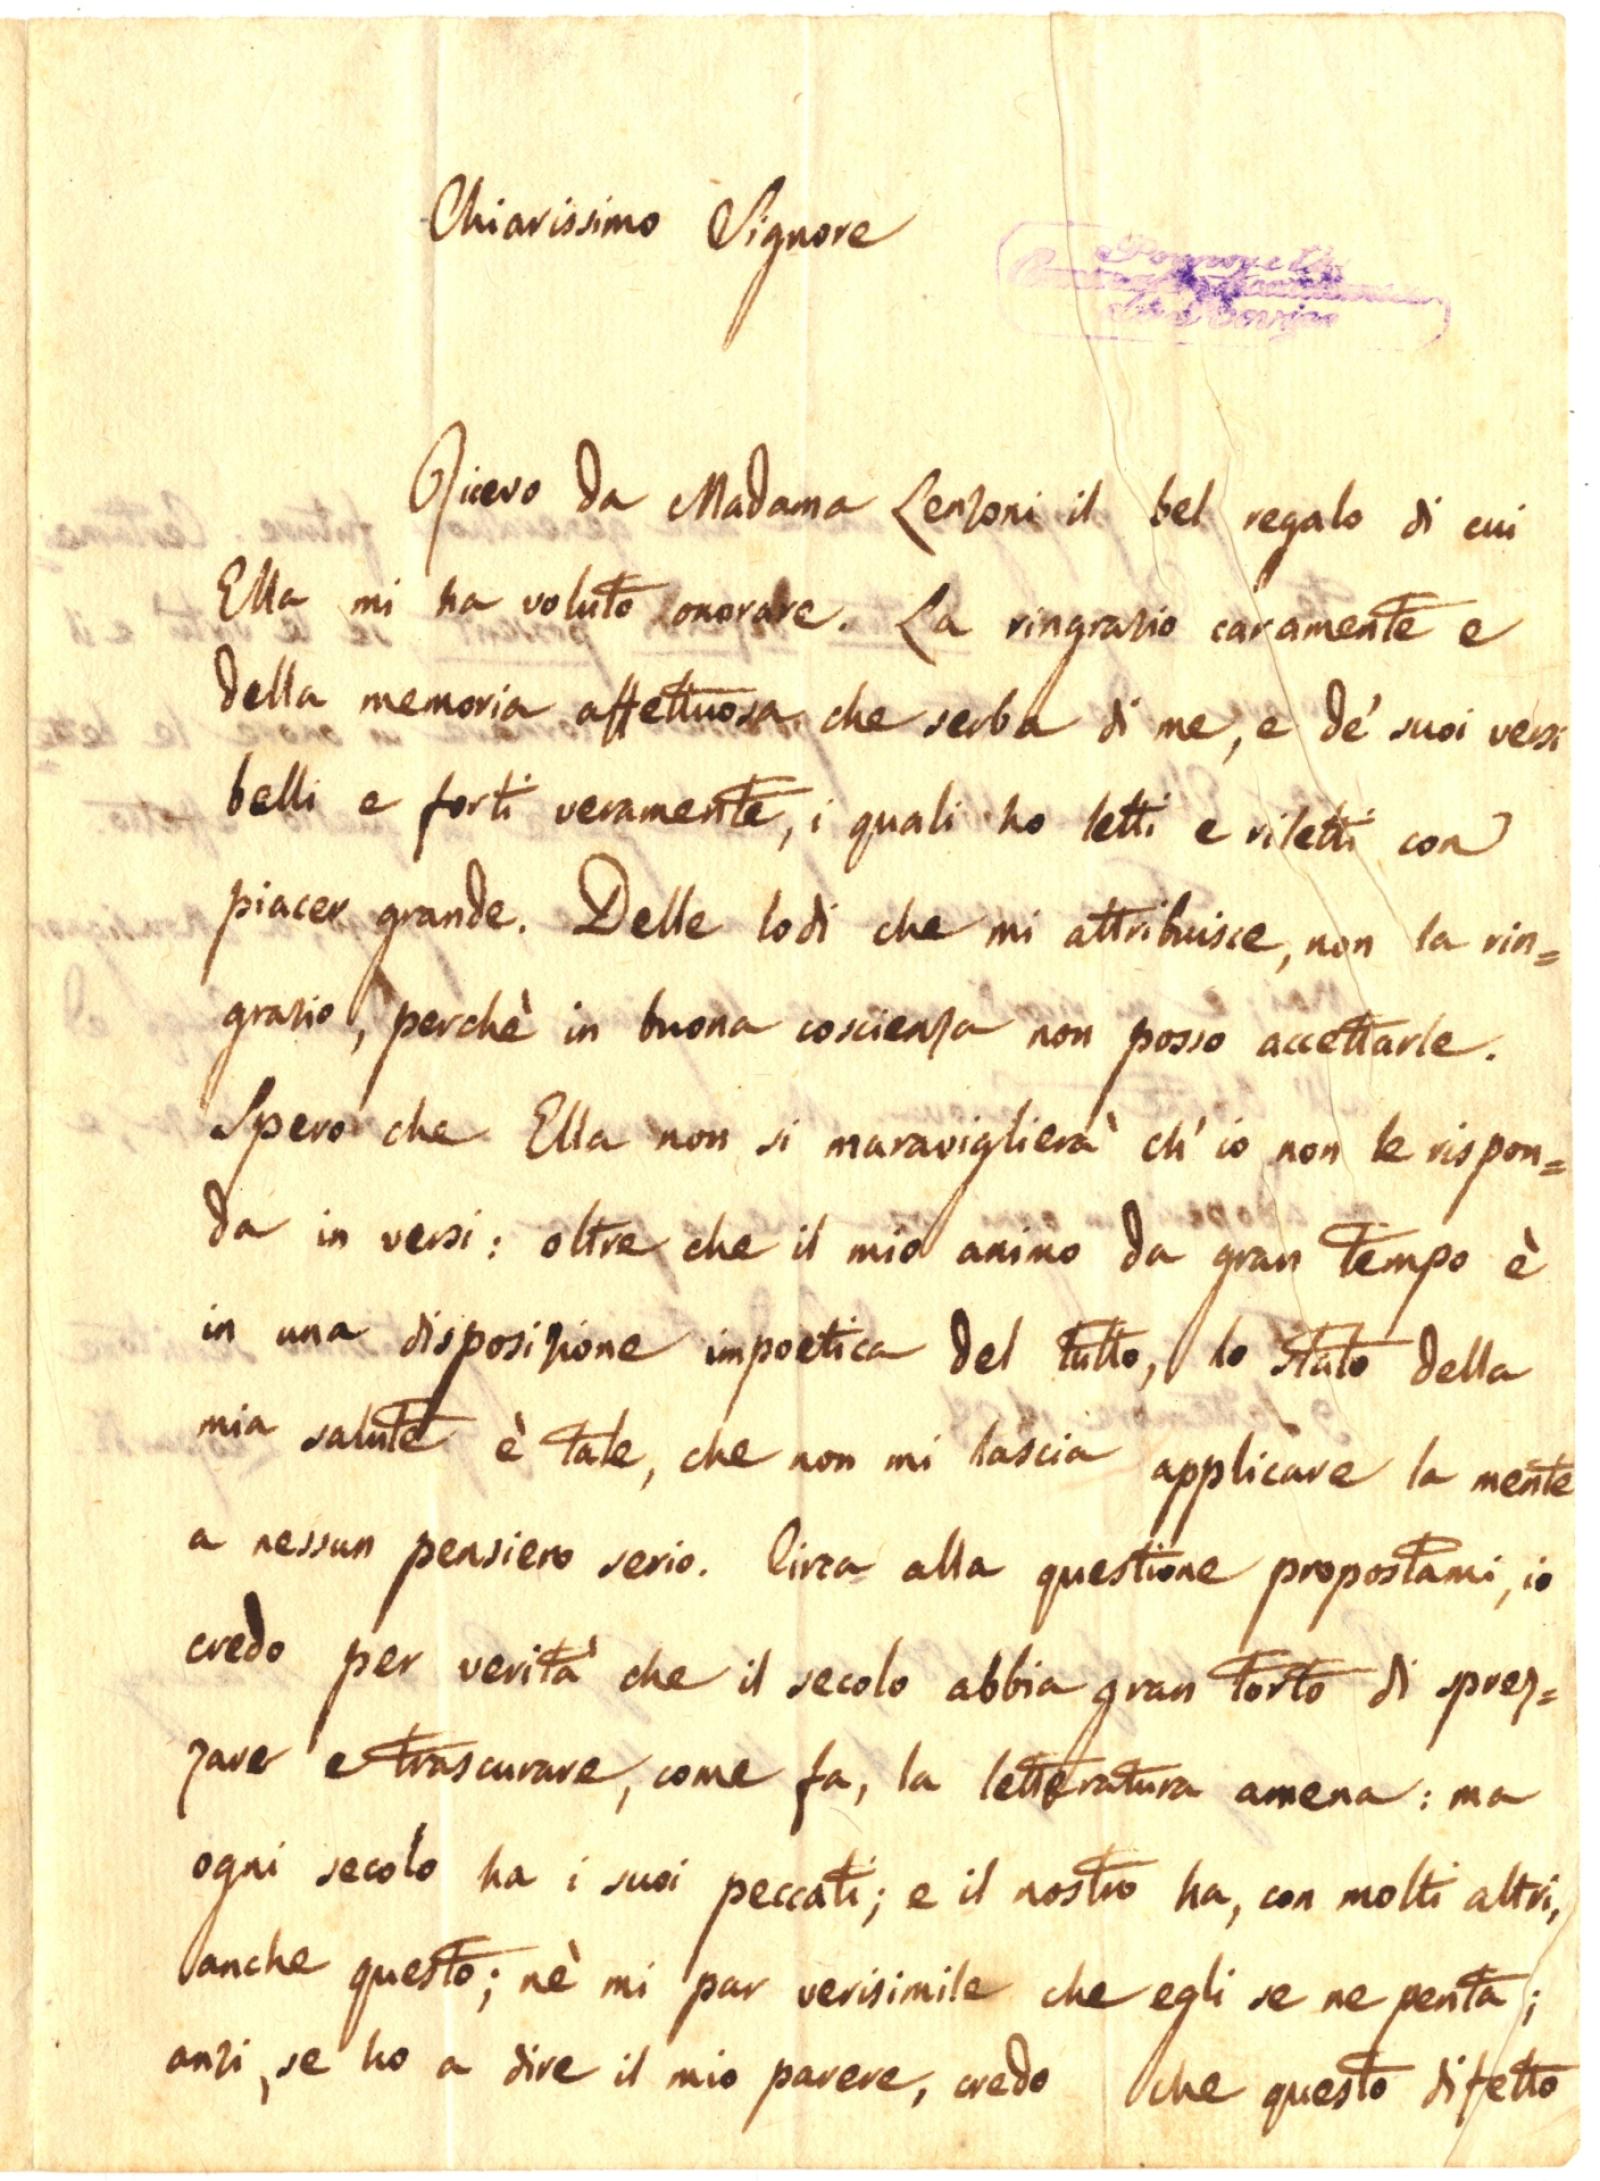 Chiarissimo Signore
Ricevo da Madama Lenzoni il bel regalo di cui
Ella mi ha voluto onorare. La ringrazio caramente e
della memoria affettuosa che serba di me, e de' suoi versi
belli e forti veramente, i quali ho letti e riletti con
piacer grande. Delle lodi che mi attribuisce, non la rin=
grazio, perchè in buona coscienza non posso accettarle.
Spero che Ella non si maraviglierà ch' io non le rispon=
da in versi: oltre che il mio animo da gran tempo è
in una disposizione impoetica del tutto, lo stato della
mia salute è tale, che non mi lascia applicare la mente
a nessun pensiero serio. Circa alla questione propostami, io
credo per verità che il secolo abbia gran torto di sprez=
zare e trascurare, come fa, la letteratura amena: ma
ogni secolo ha i suoi peccati; e il nostro ha, con molti altri,
anche questo; nè mi par verisimile che egli se ne penta;
anzi, se ho a dire il mio parere, credo che questo difetto